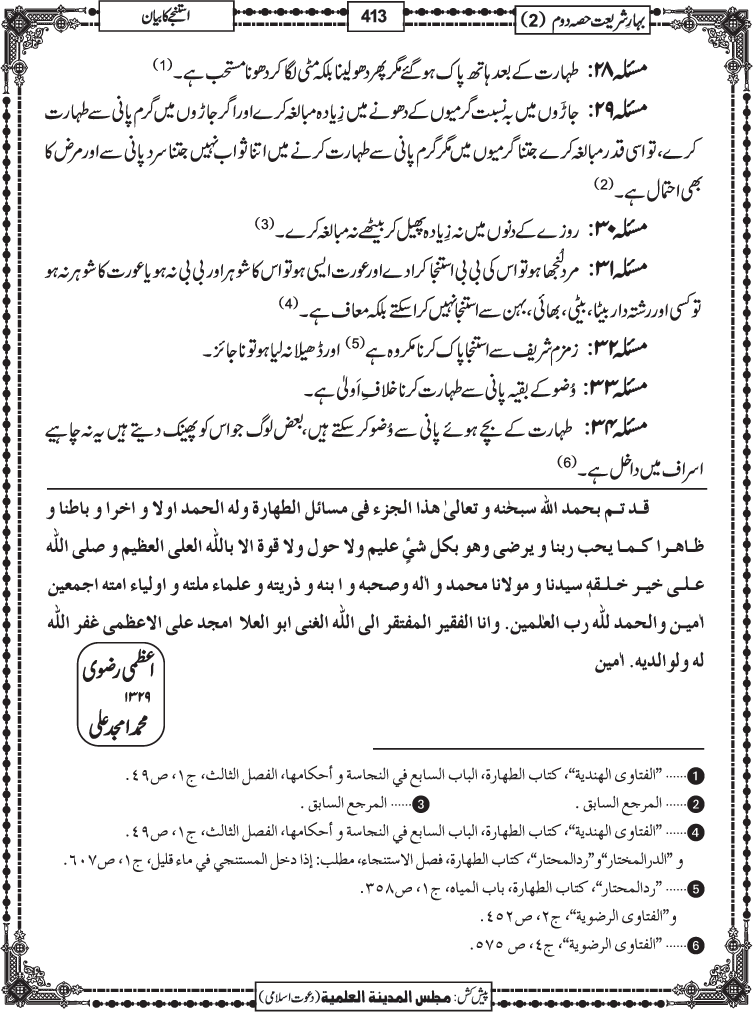 بہارِ شریعت حصہ دوم (2)
413
استنجے کا بیان
مسئلہ ۲۸: طہارت کے بعد ہاتھ پاک ہوگئے مگر پھر دھولینا بلکہ مٹی لگا کر دھونا مستحب ہے۔(1)
مسئلہ ۲۹: جاڑوں میں بہ نسبت گرمیوں کے دھونے میں زِیادہ مبالغہ کرے اور اگر جاڑوں میں گرم پانی سے طہارت
کرے، تو اسی قدر مبالغہ کرے جتنا گرمیوں میں مگر گرم پانی سے طہارت کرنے میں اتنا ثواب نہیں جتنا سرد پانی سے اور مرض کا
بھی احتمال ہے۔(2)
مسئلہ ۳۰: روزے کے دنوں میں نہ زِیادہ پھیل کر بیٹھے نہ مبالغہ کرے۔(3)
مسئلہ ۳۱: مرد لُنجھا ہو تو اس کی بی بی استنجا کرا دے اور عورت ایسی ہو تو اس کا شوہر اور بی بی نہ ہو یا عورت کا شوہر نہ ہو
تو کسی اور رشتہ دار بیٹا، بیٹی، بھائی، بہن سے استنجا نہیں کرا سکتے بلکہ معاف ہے۔(4)
مسئلہ ۳۲: زمزم شریف سے استنجا پاک کرنا مکروہ ہے(5) اور ڈھیلا نہ لیا ہو تو ناجائز۔
مسئلہ ۳۳: وُضو کے بقیہ پانی سے طہارت کرنا خلافِ اَولیٰ ہے۔
مسئلہ ۳۴: طہارت کے بچے ہوئے پانی سے وُضو کر سکتے ہیں، بعض لوگ جو اس کو پھینک دیتے ہیں یہ نہ چاہیے
اسراف میں داخل ہے۔(6)
قد تم بحمد اللہ سبحٰنہ و تعالیٰ ھذا الجزء فی مسائل الطھارۃ ولہ الحمد اولا و اخرا و باطنا و
ظاھرا کما یحب ربنا و یرضی وھو بکل شیٔ علیم ولا حول ولا قوۃ الا باللہ العلی العظیم و صلی اللہ
علی خیر خلقہٖ سیدنا و مولانا محمد و اٰلہ وصحبہ و ابنہ و ذریتہ و علماء ملتہ و اولیاء امتہ اجمعین
اٰمین والحمد للہ رب العٰلمین۔ وانا الفقیر المفتقر الی اللہ الغنی ابو العلا امجد علی الاعظمی غفر اللہ
لہ ولوالدیہ۔ اٰمین
اعظمی رضوی
۱۳۲۹
محمد امجد علی
1 ...... ”الفتاوی الھندیة“، کتاب الطھارة، الباب السابع في النجاسة و أحکامھا، الفصل الثالث، ج۱، ص۴۹.
2 ...... المرجع السابق .
3 ...... المرجع السابق .
4 ...... ”الفتاوی الھندیة“، کتاب الطھارة، الباب السابع في النجاسة و أحکامھا، الفصل الثالث، ج۱، ص۴۹.
و ”الدرالمختار“و”ردالمحتار“، کتاب الطھارة، فصل الاستنجاء، مطلب: إذا دخل المستنجي في ماء قلیل، ج۱، ص۶۰۷.
5 ...... ”ردالمحتار“، کتاب الطھارة، باب المیاہ، ج۱، ص۳۵۸.
و”الفتاوی الرضویة“، ج۲، ص۴۵۲.
6 ...... ”الفتاوی الرضویة“، ج۴، ص ۵۷۵.
پیش کش: مجلس المدینة العلمیة (دعوت اسلامی)